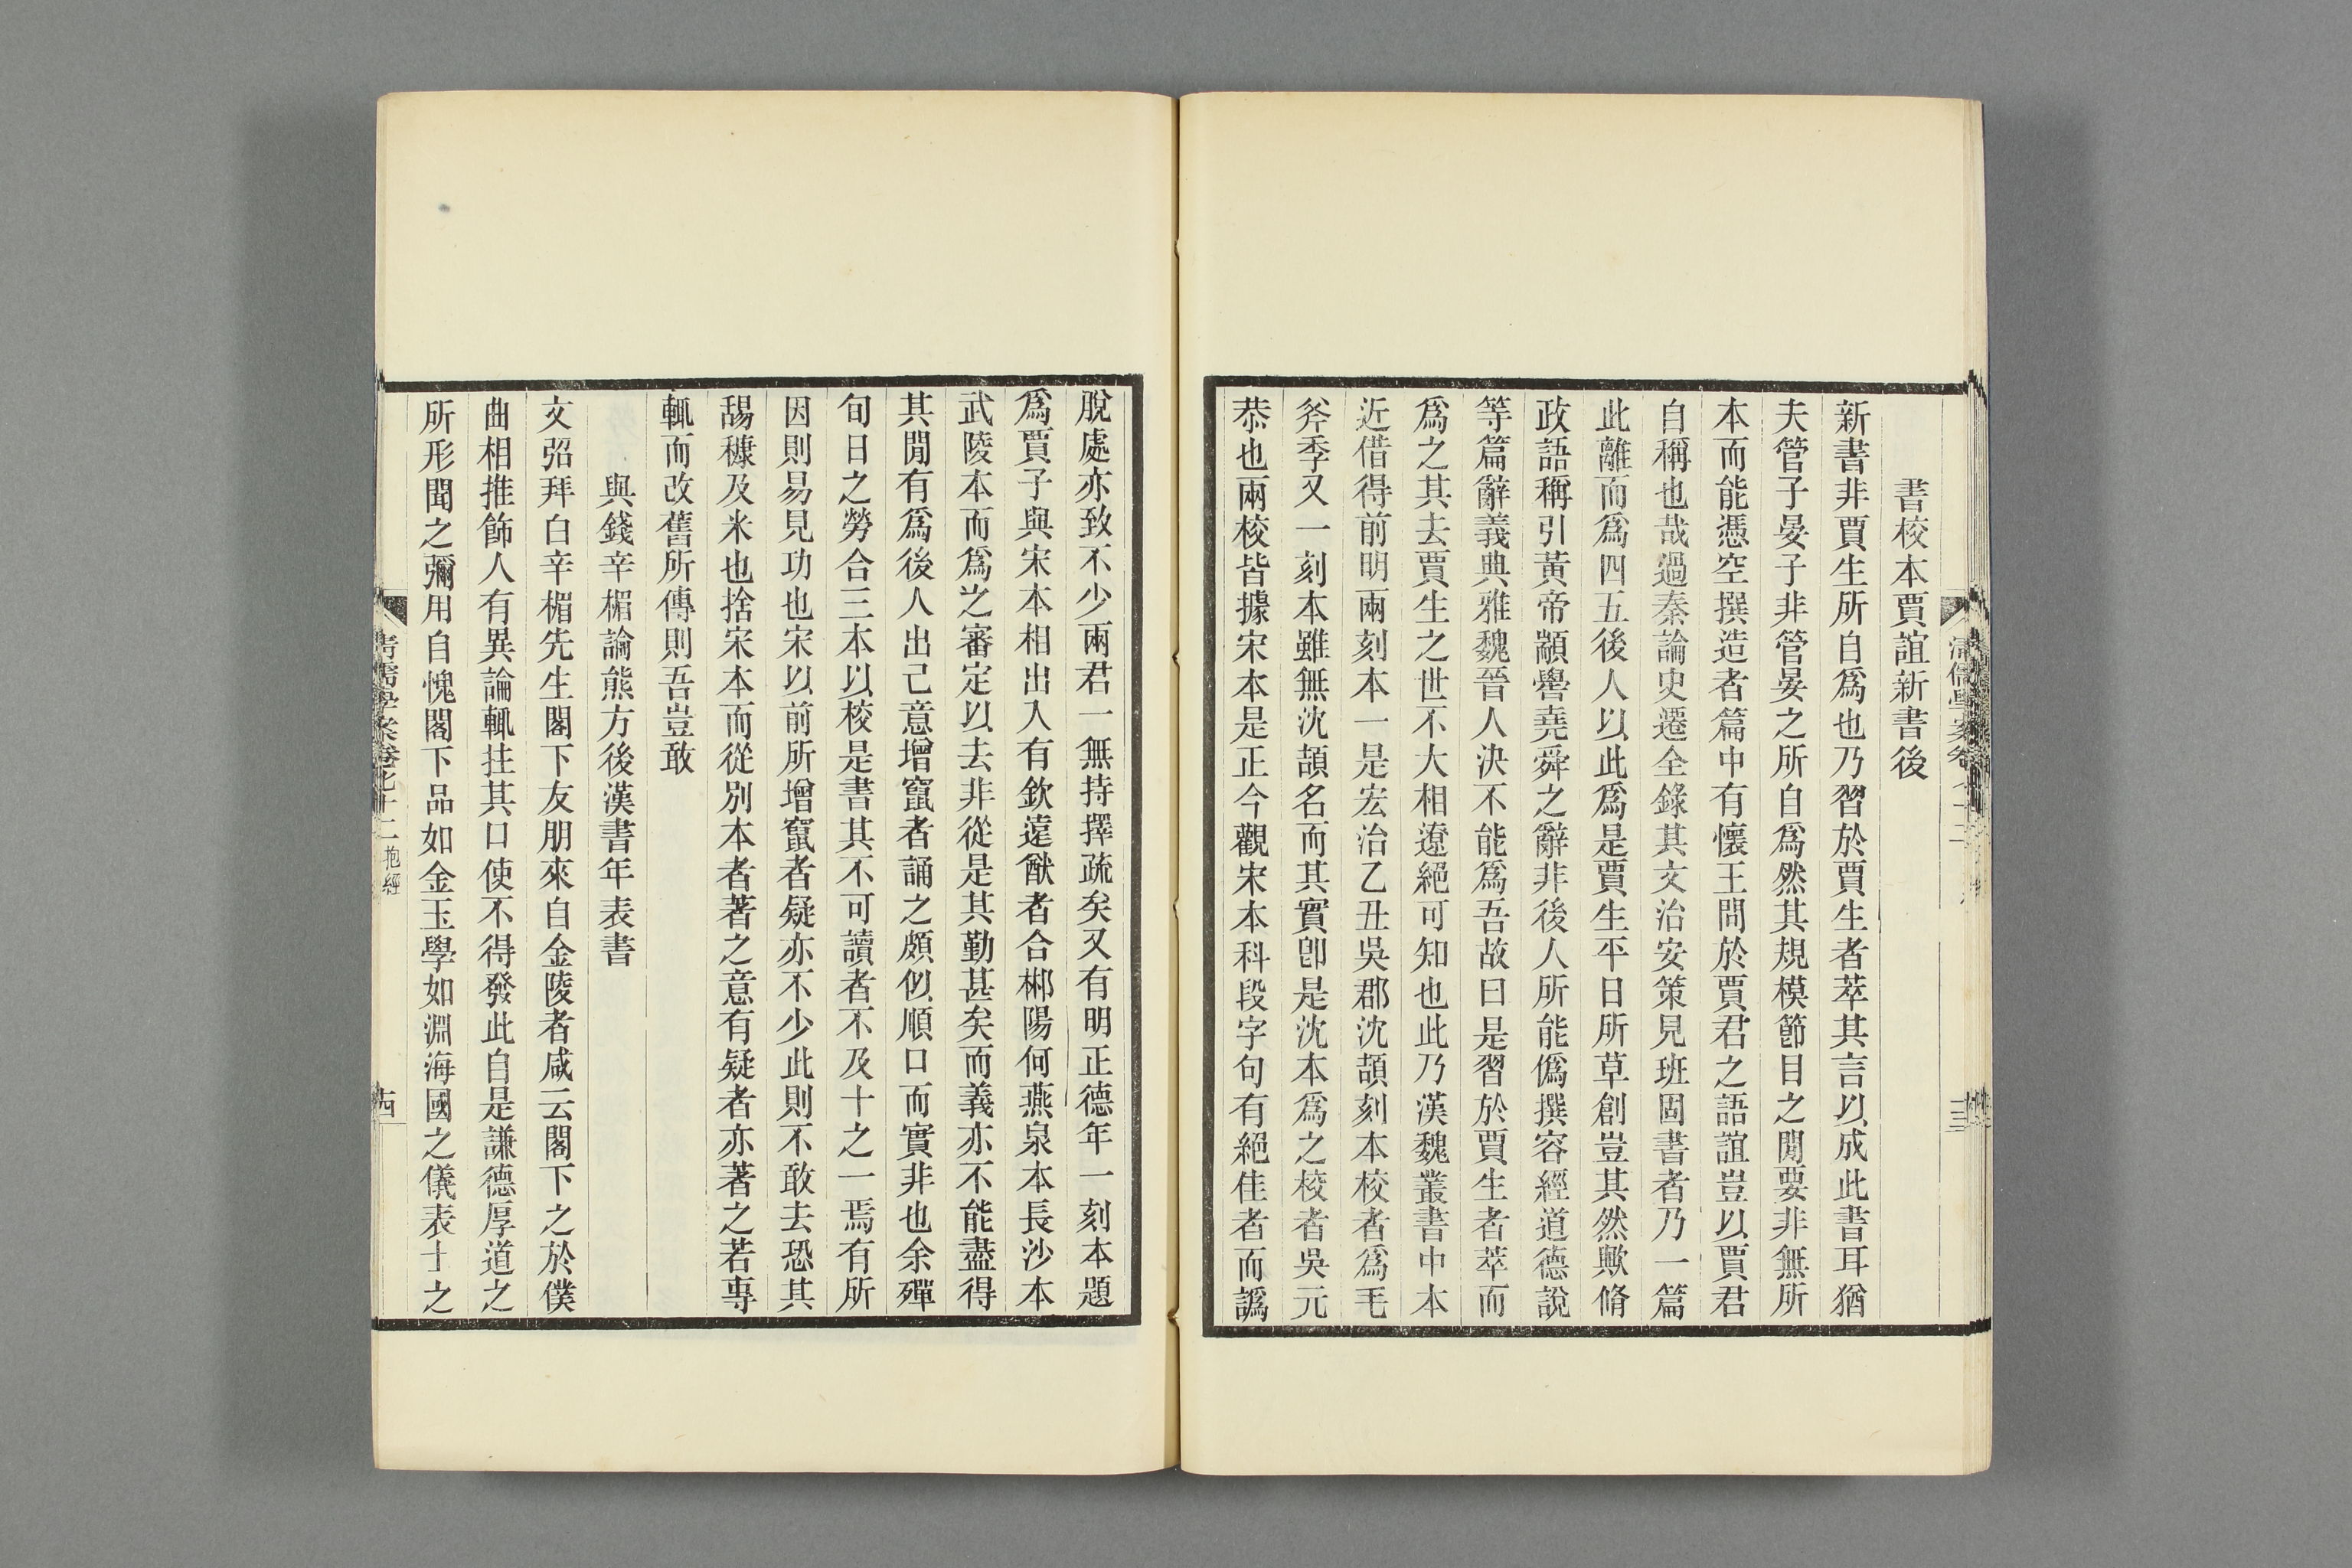 書校本賈誼新書後
新書非賈生所自爲也乃習於賈生者萃其言以成此書耳猶
夫管子晏子非管晏之所自爲然其規模節目之閒要非無所
本而能憑空撰造者篇中有懷王問於賈君之語誼豈以賈君
自稱也哉過秦論史遷全錄其文治安策見班固書者乃一篇
此離而爲四五後人以此爲是賈生平日所草創豈其然歟脩
政語稱引黃帝顓嚳堯舜之辭非後人所能僞撰容經道德說
等篇辭義典雅魏晉人決不能爲吾故曰是習於賈生者萃而
爲之其去賈生之世不大相遼絕可知也此乃漢魏叢書中本
近借得前明兩刻本一是宏治乙丑吳郡沈頡刻本校者爲毛
斧季又一刻本雖無沈頡名而其實卽是沈本爲之校者吳元
恭也兩校皆據宋本是正今觀宋本科段字句有絕佳者而譌
脫處亦致不少兩君一無持擇疏矣又有明正德年一刻本題
爲賈子與宋本相出入有欽遠猷者合郴陽何燕泉本長沙本
武陵本而爲之審定以去非從是其勤甚矣而義亦不能盡得
其閒有爲後人出己意增竄者誦之頗似順口而實非也余殫
旬日之勞合三本以校是書其不可讀者不及十之一焉有所
因則易見功也宋以前所增竄者疑亦不少此則不敢去恐其
䑛穅及米也捨宋本而從別本者著之意有疑者亦著之若專
輒而改舊所傳則吾豈敢
與錢辛楣論熊方後漢書年表書
文弨拜白辛楣先生閣下友朋來自金陵者咸云閣下之於僕
曲相推飾人有異論輒拄其口使不得發此自是謙德厚道之
所形聞之彌用自愧閣下品如金玉學如淵海國之儀表士之
清儒學案卷七十二 抱經
十四